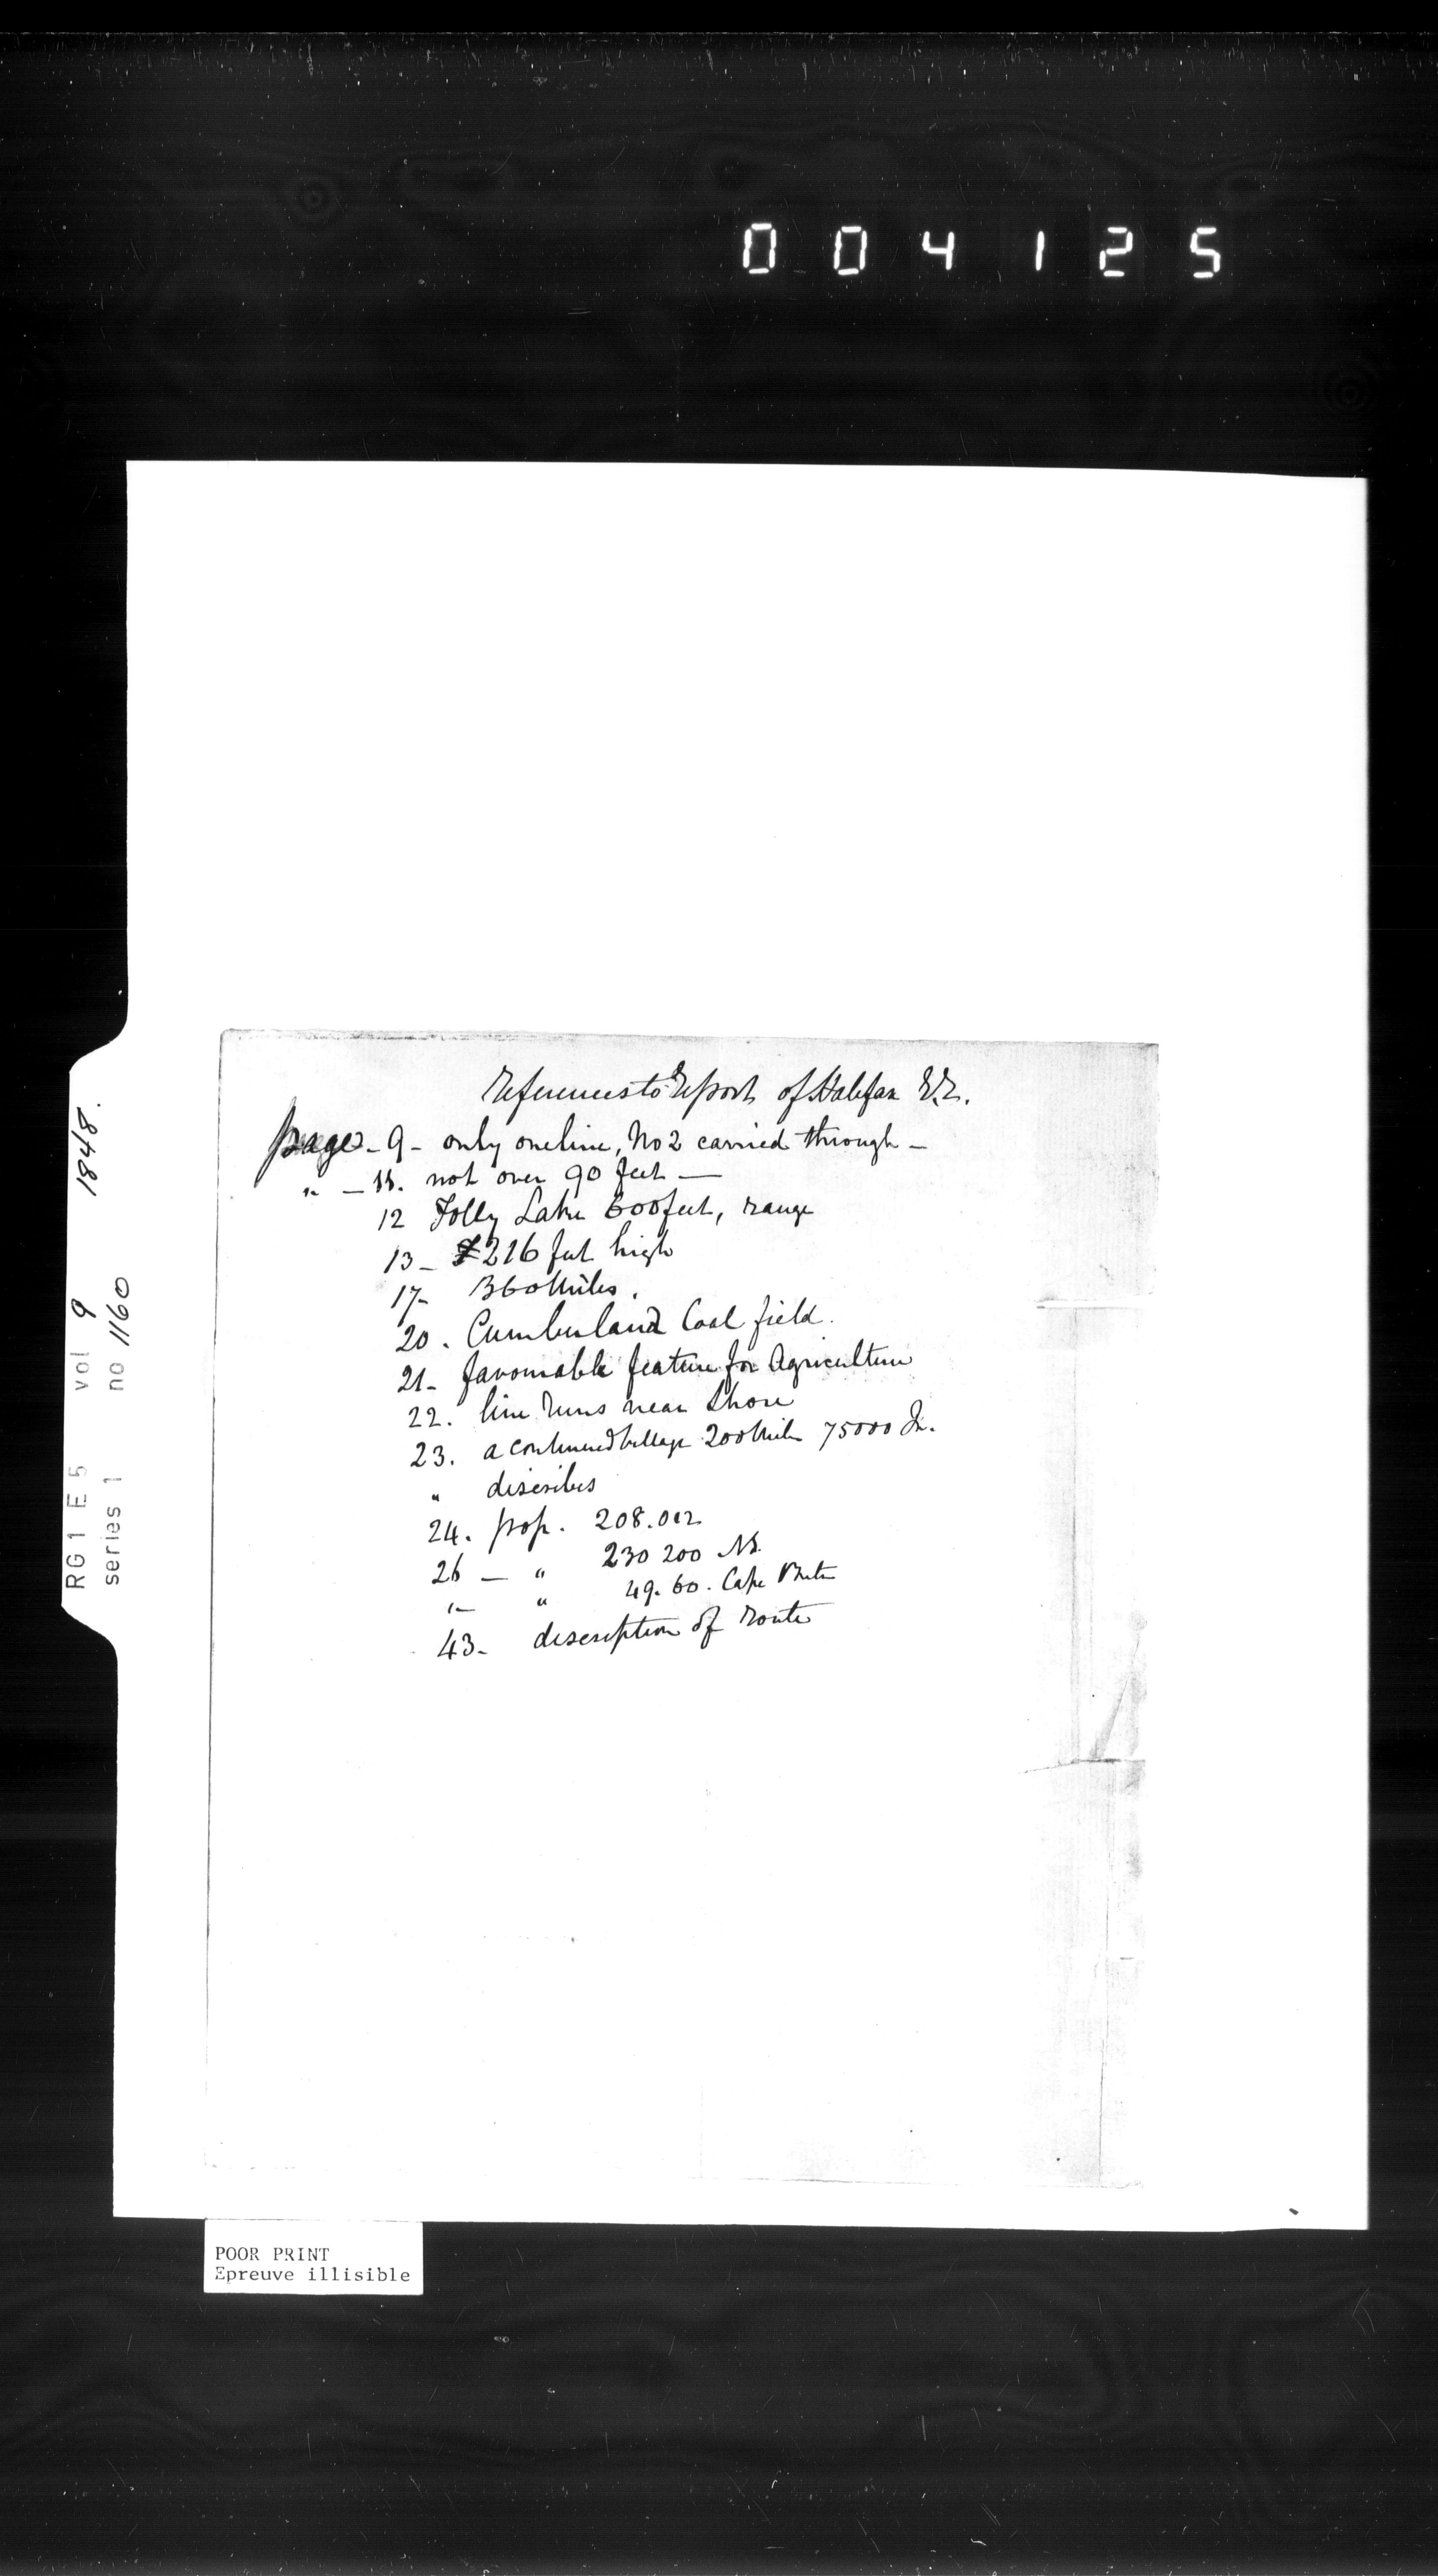 004125
RG1 E5 vol 9 1848.
series 1 no 1160
References to Report of Halifax
page - 9 - only one line, No 2 carried through -
" - 11. not over 90 feet -
12 Folly Lake 600 feet, range
13 - 216 feet high
17 - 360 Miles.
20. Cumberland Coal field.
21 - favourable feature for Agriculture
22. line runs near Shore
23. a continued village 200 Miles 75000
" discribes
24. pop. 208.012
26 - " 230 200 NS.
" " 49.60. Cape Breton
43 - discription of route
POOR PRINT
Epreuve illisible